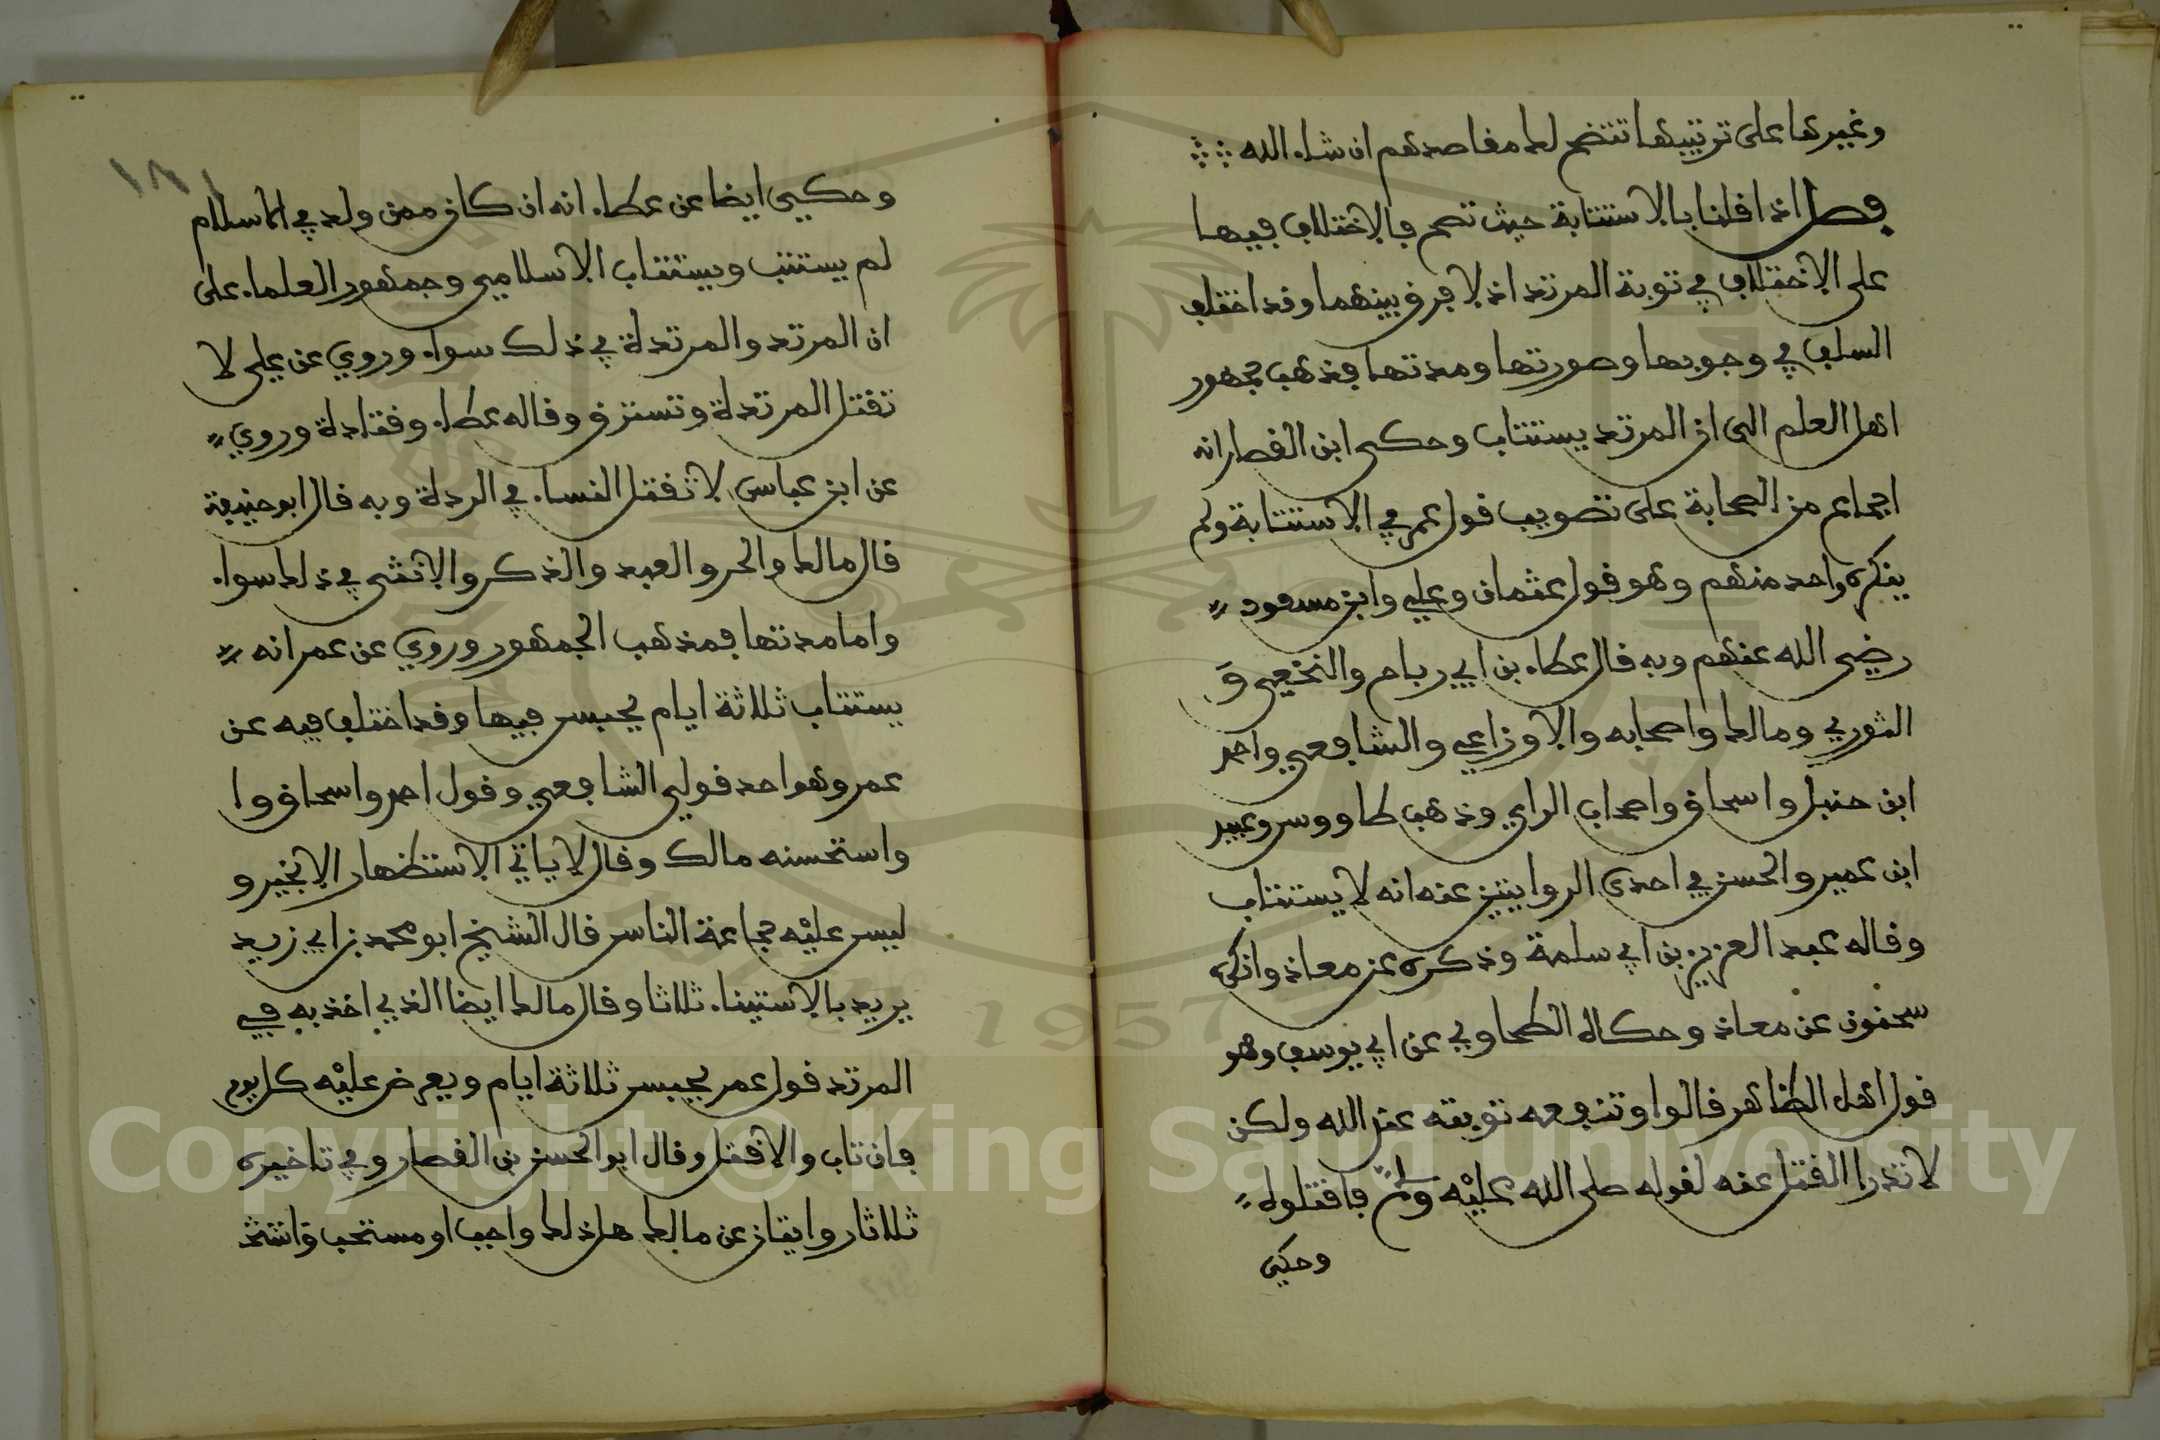 وغيرها على ترتيبها تتضح لك مقاصدهم ان شاء الله
فصل اذا قلنا بالاستتابة حيث تصح فالاختلاف فيها
على الاختلاف في توبة المرتد اذ لا فرق بينهما وقد اختلف
السلف في وجوبها وصورتها ومدتها فذهب جمهور
اهل العلم الى ان المرتد يستتاب وحكى ابن القصار انه
اجماع من الصحابة على تصويب قول عمر في الاستتابة ولم
ينكره واحد منهم وهو قول عثمان وعلي وابن مسعود
رضي الله عنهم وبه قال عطاء بن ابي رباح والنخعي و
الثوري ومالك واصحابه والاوزاعي والشافعي واحمد
ابن حنبل واسحاق واصحاب الراي وذهب طاووس وعبيد
ابن عمير والحسن في احدى الروايتين عنه انه لا يستتاب
وقاله عبد العزيز بن ابي سلمة وذكره عن معاذ وانكره
سحنون عن معاذ وحكاه الطحاوي عن ابي يوسف وهو
قول اهل الظاهر قالوا وتنفعه توبته عند الله ولكن
لا تدرا القتل عنه لقوله صلى الله عليه وسلم فاقتلوه
وحكي
وحكي ايضا عن عطاء انه ان كان ممن ولد في الاسلام
لم يستتب ويستتاب الاسلامي وجمهور العلماء على
ان المرتد والمرتدة في ذلك سواء وروي عن علي لا
تقتل المرتدة وتسترق وقاله عطاء وقتادة وروي
عن ابن عباس لا تقتل النساء في الردة وبه قال ابو حنيفة
قال مالك والحر والعبد والذكر والانثى في ذلك سواء
واما مدتها فمذهب الجمهور وروي عن عمر انه
يستتاب ثلاثة ايام يحبس فيها وقد اختلف فيه عن
عمر وهو احد قولي الشافعي وقول احمد واسحاق وا
واستحسنه مالك وقال لا ياتي الاستظهار الا بخير و
ليس عليه جماعة الناس قال الشيخ ابو محمد بن ابي زيد
يريد بالاستيناء ثلاثا وقال مالك ايضا الذي اخذ به في
المرتد قول عمر يحبس ثلاثة ايام ويعرض عليه كل يوم
فان تاب والا قتل وقال ابو الحسن بن القصار وفي تاخيره
ثلاثا روايتان عن مالك هل ذلك واجب او مستحب
1957
Copyright © King Saud University